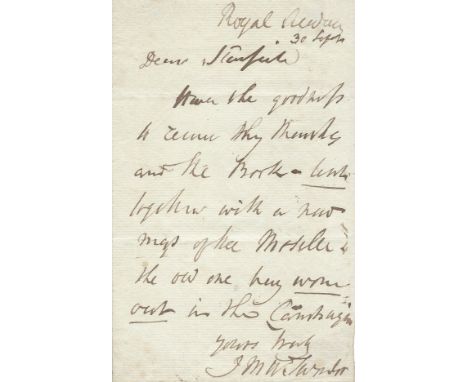 Royal Academy
30 Sept
Dear Stanfield
Have the goodness
to receive my thanks
and the Book - lent
together with a new
map of the Moselle
the old one being worn
out in the Campaign
Yours truly
J M W Turner